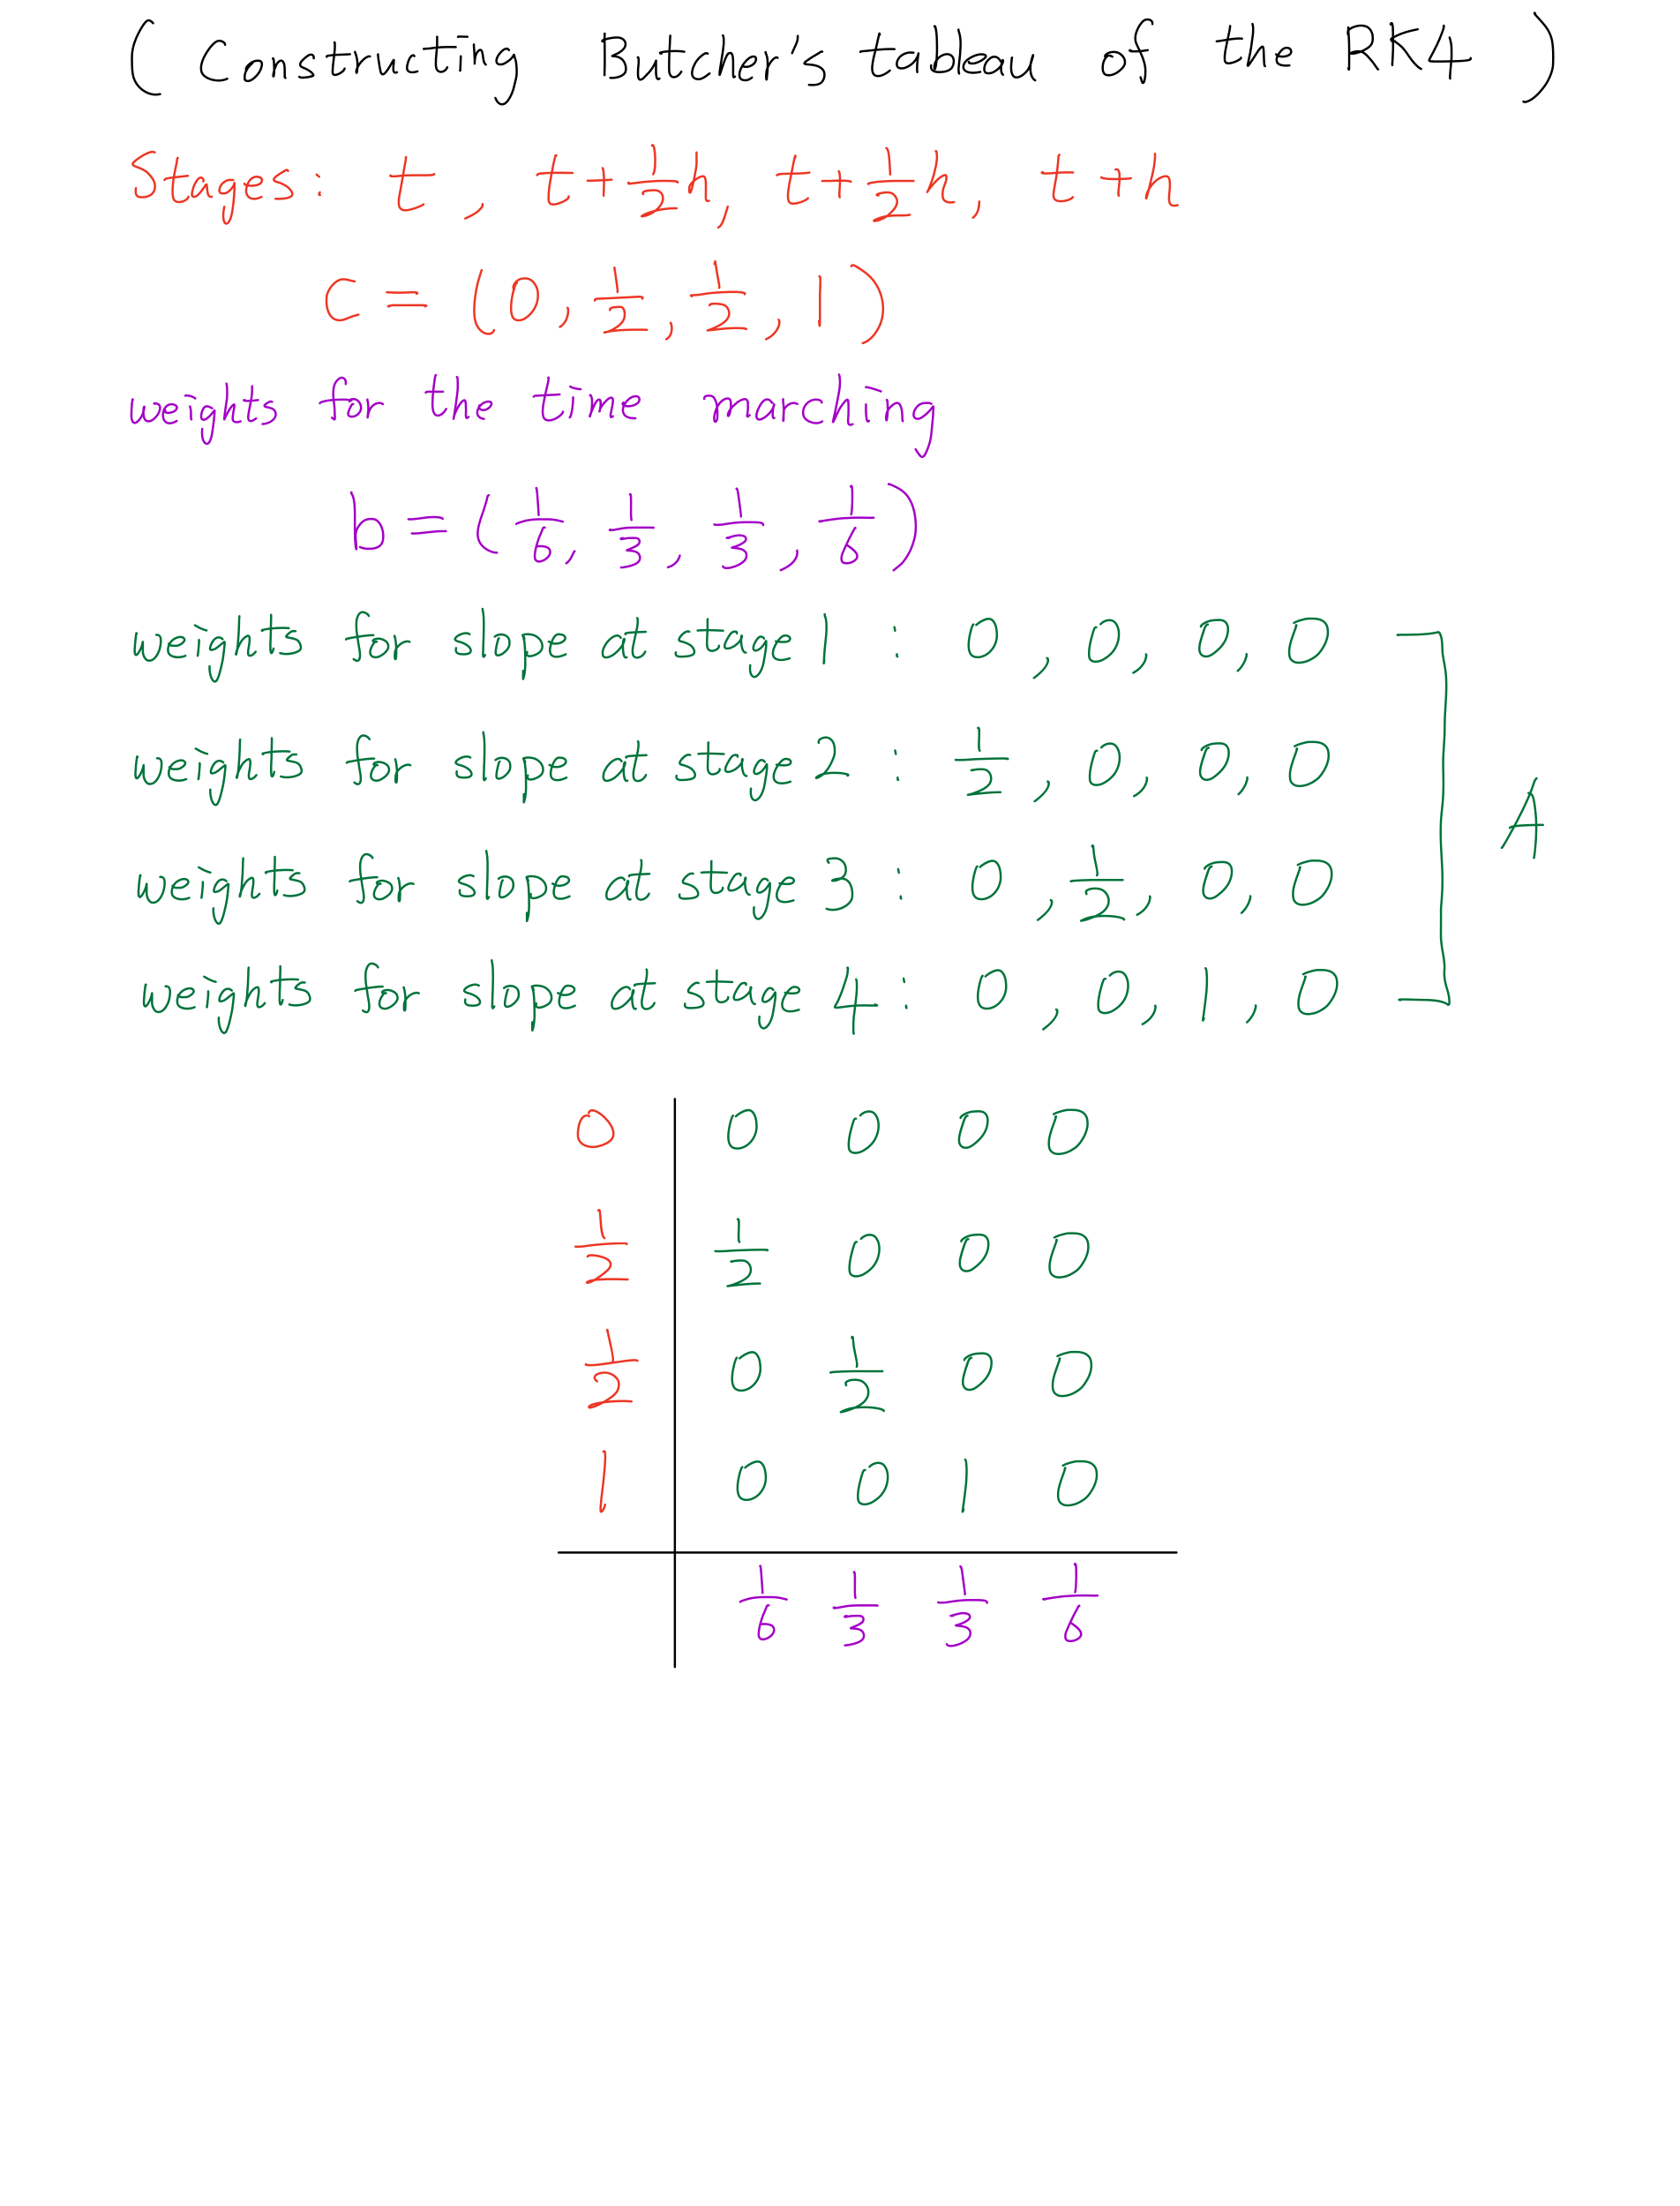 ( Constructing Butcher's tableau of the RK4 )
Stages: t, t+1/2h, t+1/2h, t+h
c = (0, 1/2, 1/2, 1)
weights for the time marching
b = (1/6, 1/3, 1/3, 1/6)
weights for slope at stage 1 : 0, 0, 0, 0
weights for slope at stage 2 : 1/2, 0, 0, 0
A
weights for slope at stage 3 : 0, 1/2, 0, 0
weights for slope at stage 4 : 0, 0, 1, 0
0 | 0 0 0 0
1/2 | 1/2 0 0 0
1/2 | 0 1/2 0 0
1 | 0 0 1 0
| 1/6 1/3 1/3 1/6